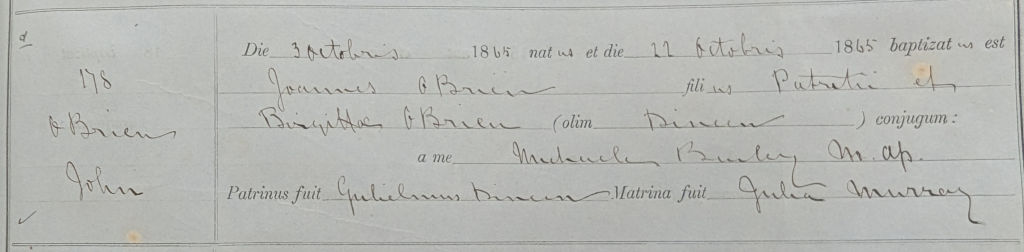 d
Die 3 Octobris 1865 natus et die 22 Octobris 1865 baptizatus est
178
Joannes O'Brien filius Patritii et
O'Brien
Birgittae O'Brien (olim Dineen) conjugum:
a me Michaele M. ap.
John
Patrinus fuit Gulielmus Dineen Matrina fuit Julia Murray
✓